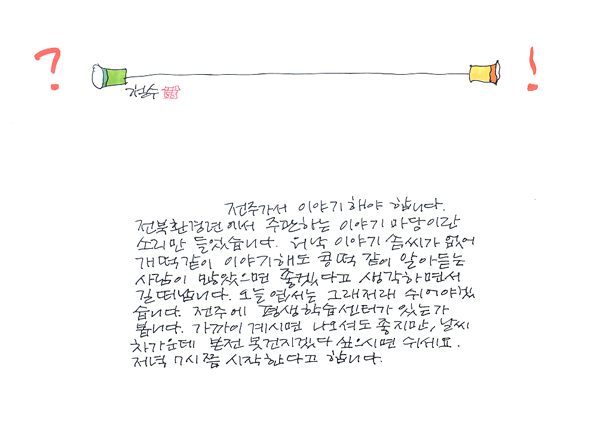 ? !
철수
전주가서 이야기해야 합니다.
전북환경련에서 주관하는 이야기 마당이란
소리만 들었습니다. 워낙 이야기 솜씨가 없어
개떡같이 이야기해도 콩떡 같이 알아듣는
사람이 많았으면 좋겠다고 생각하면서
길떠납니다. 오늘 엽서는 그래저래 쉬어야겠
습니다. 전주에 평생학습센터가 있는가
봅니다. 가까이 계시면 나오셔도 좋지만, 날씨
차가운데 본전 못건지겠다 싶으시면 쉬세요.
저녁 7시쯤 시작한다고 합니다.